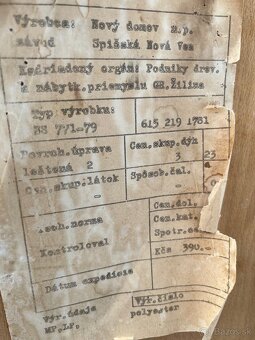 Výrobca: Nový domov n.p.
závod Spišská Nová Ves
Nadriadený orgán: Podniky drev.
a nábytk.priemyslu GR.Žilina
Typ výrobku:
BS 771-79 615 219 1781
Povrch.úprava Cen.skup.dýh
leštená 2 3 23
Cen.skup.látok Spôsob.čal. a
- -
.ech.norma Cen.dol.
Cen.kat.
Kontroloval Spotr.ce
Kčs 390.-
Dátum expedície
Výr.údaje Výr.číslo
MP.LP. polyester